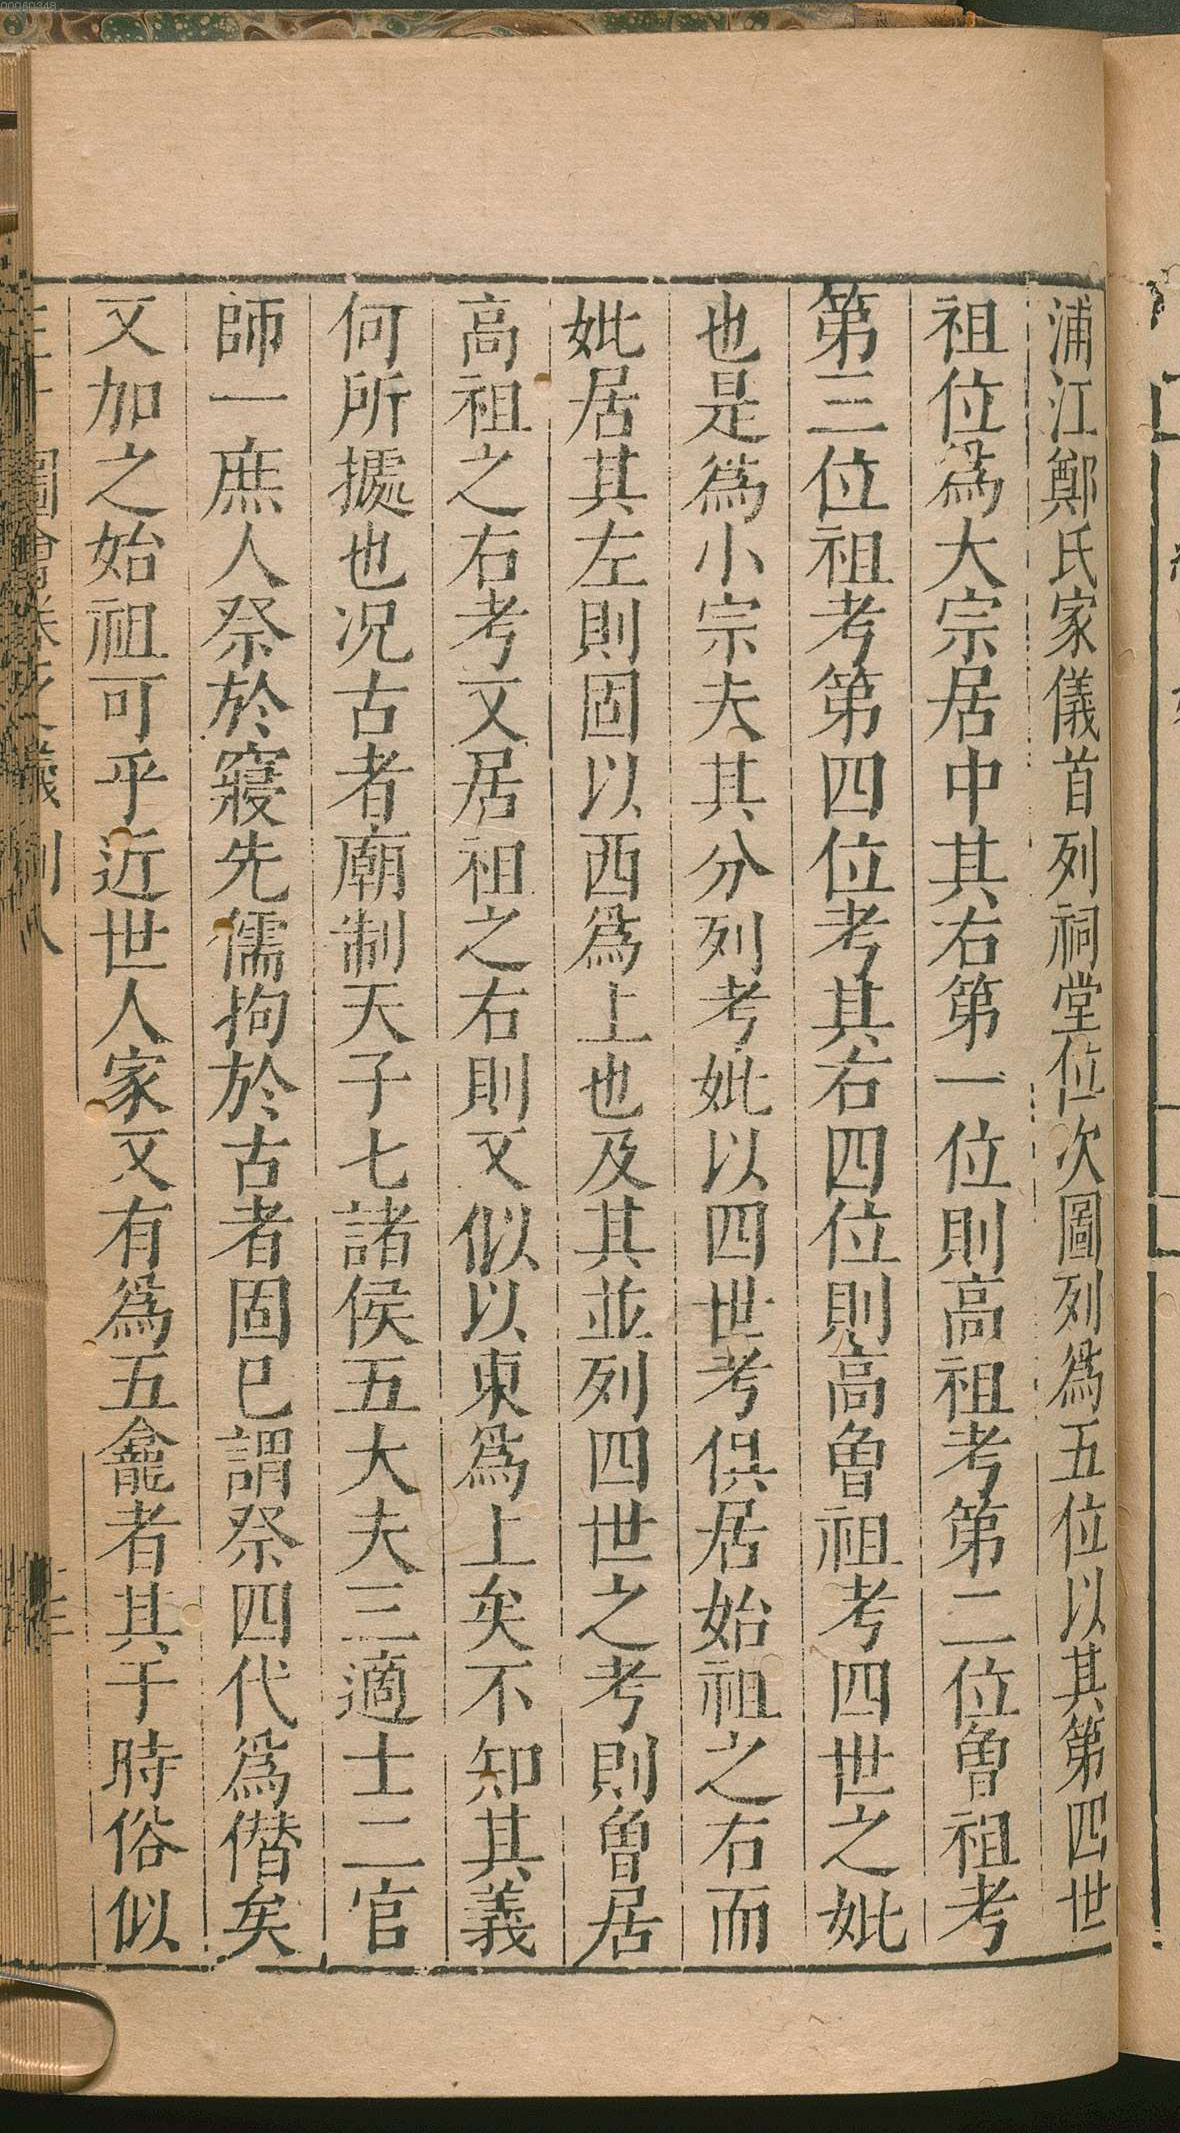 浦江鄭氏家儀首列祠堂位次圖列爲五位以其第四世
祖位爲大宗居中其右第一位則高祖考第二位曾祖考
第三位祖考第四位考其右四位則高曾祖考四世之妣
也是爲小宗夫其分列考妣以四世考俱居始祖之右而
妣居其左則固以西爲上也及其並列四世之考則曾居
高祖之右考又居祖之右則又似以東爲上矣不知其義
何所據也况古者廟制天子七諸侯五大夫三適士二官
師一庶人祭於寢先儒拘於古者固已謂祭四代爲僣矣
又加之始祖可乎近世人家又有爲五龕者其于時俗似
00060348